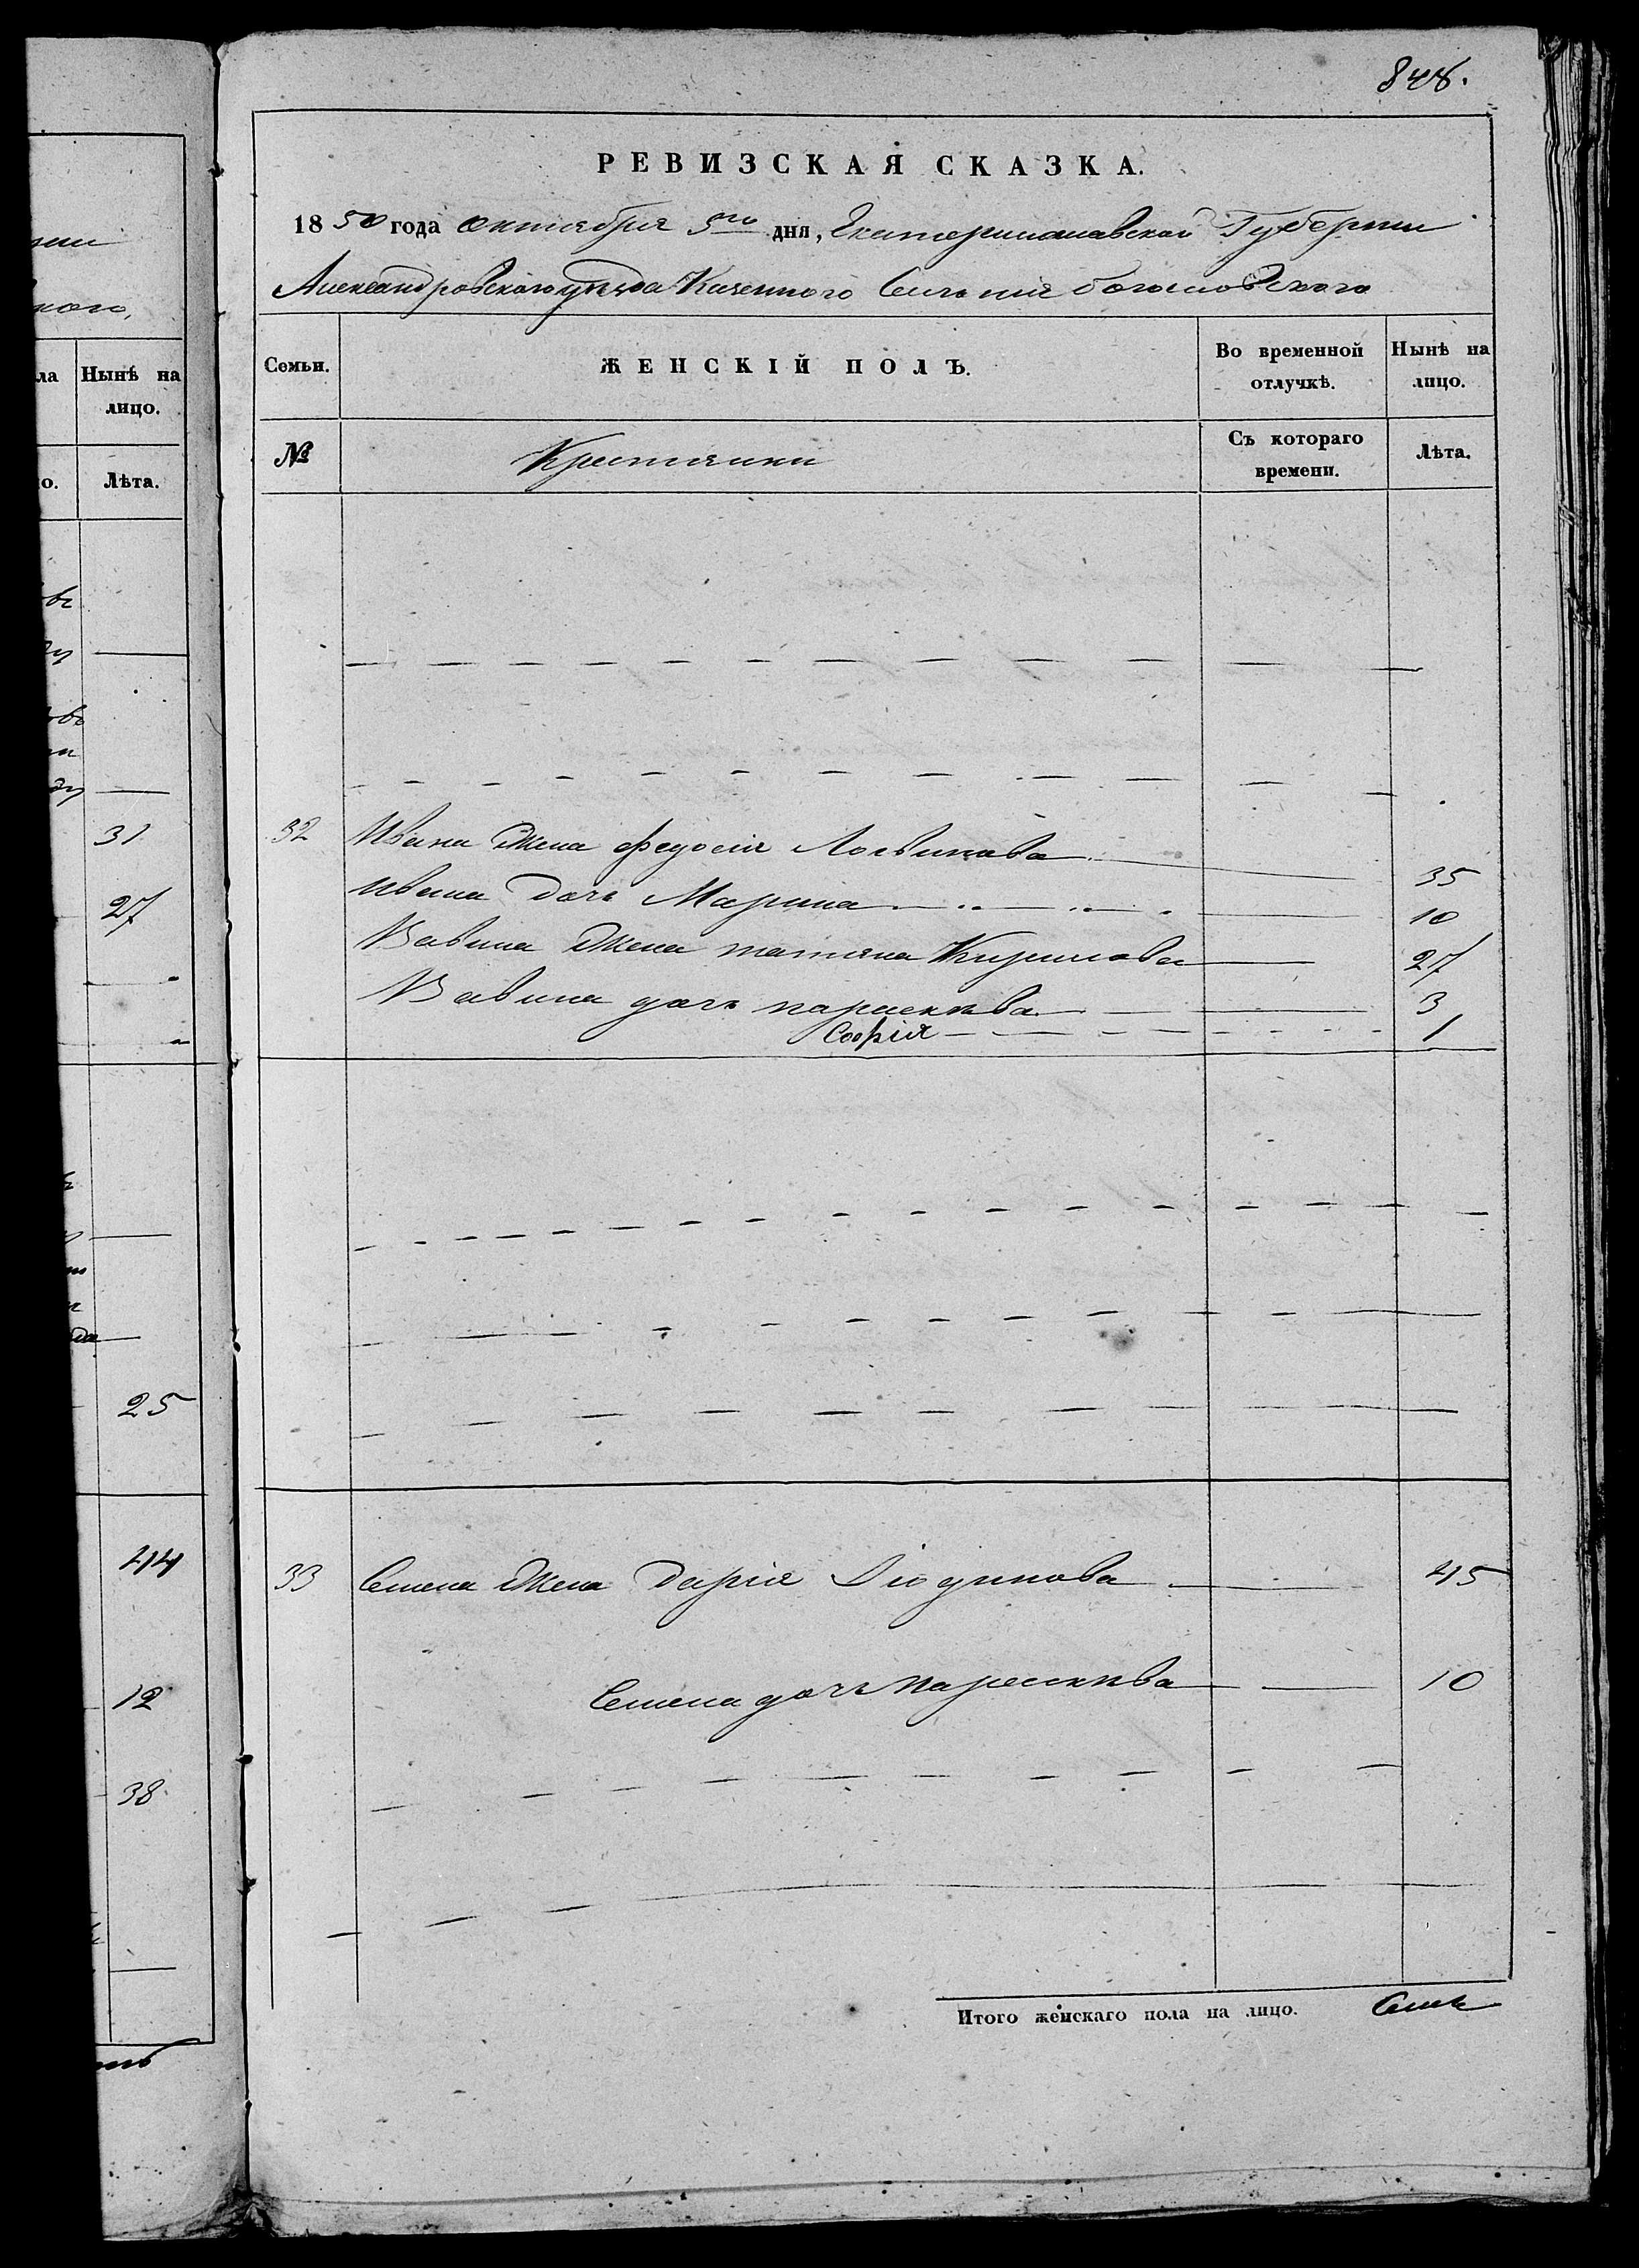 848.
РЕВИЗСКАЯ СКАЗКА.
1850 года октября 5го дня, Екатеринославской Губернии
Александровского уѣзда Казенного Селенія богословского
Семьи.
ЖЕНСКІЙ ПОЛЪ.
Во временной отлучкѣ.
Нынѣ на лицо.
№
Крестянки
Съ котораго времени.
Лѣта.
32 Ивана Жена Федосия 35
Ивана дочь Марина 10
Савина Жена татяна Кирилова 27
Савина дочь параскева 3
Софія 1
33 Семена Жена Дарія 45
Семена дочь параскева 10
Итого женскаго пола на лицо. Семь
Нынѣ на
лицо.
Лѣта.
31
27
25
44
12
38